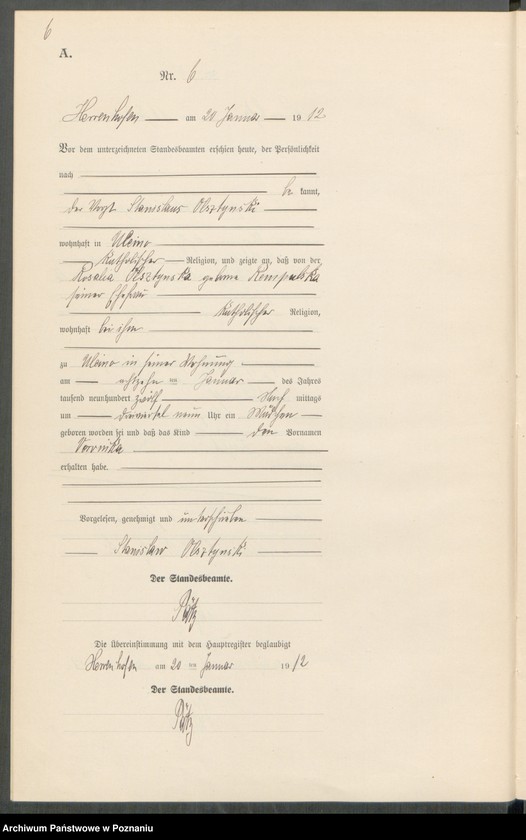 6
A.
Nr. 6
Herrenhofen am 20 Januar 1912
Vor dem unterzeichneten Standesbeamten erschien heute, der Persönlichkeit
nach
be kannt,
der Vogt Stanislaus Olsztynski
wohnhaft in Uleino
Katholischer Religion, und zeigte an, daß von der
Rosalia Olsztynska geborne
seiner Ehefrau
Katholischer Religion,
wohnhaft bei ihm
zu Uleino in seiner Wohnung
am achtzehn ten Januar des Jahres
tausend neunhundert zwölf Nach mittags
um dreiviertel neun Uhr ein Mädchen
geboren worden sei und daß das Kind den Vornamen
Veronika
erhalten habe.
Vorgelesen, genehmigt und unterschrieben
Stanislaw Olsztynski
Der Standesbeamte.
Die Übereinstimmung mit dem Hauptregister beglaubigt
Herrenhofen am 20 ten Januar 1912
Der Standesbeamte.
Archiwum Państwowe w Poznaniu